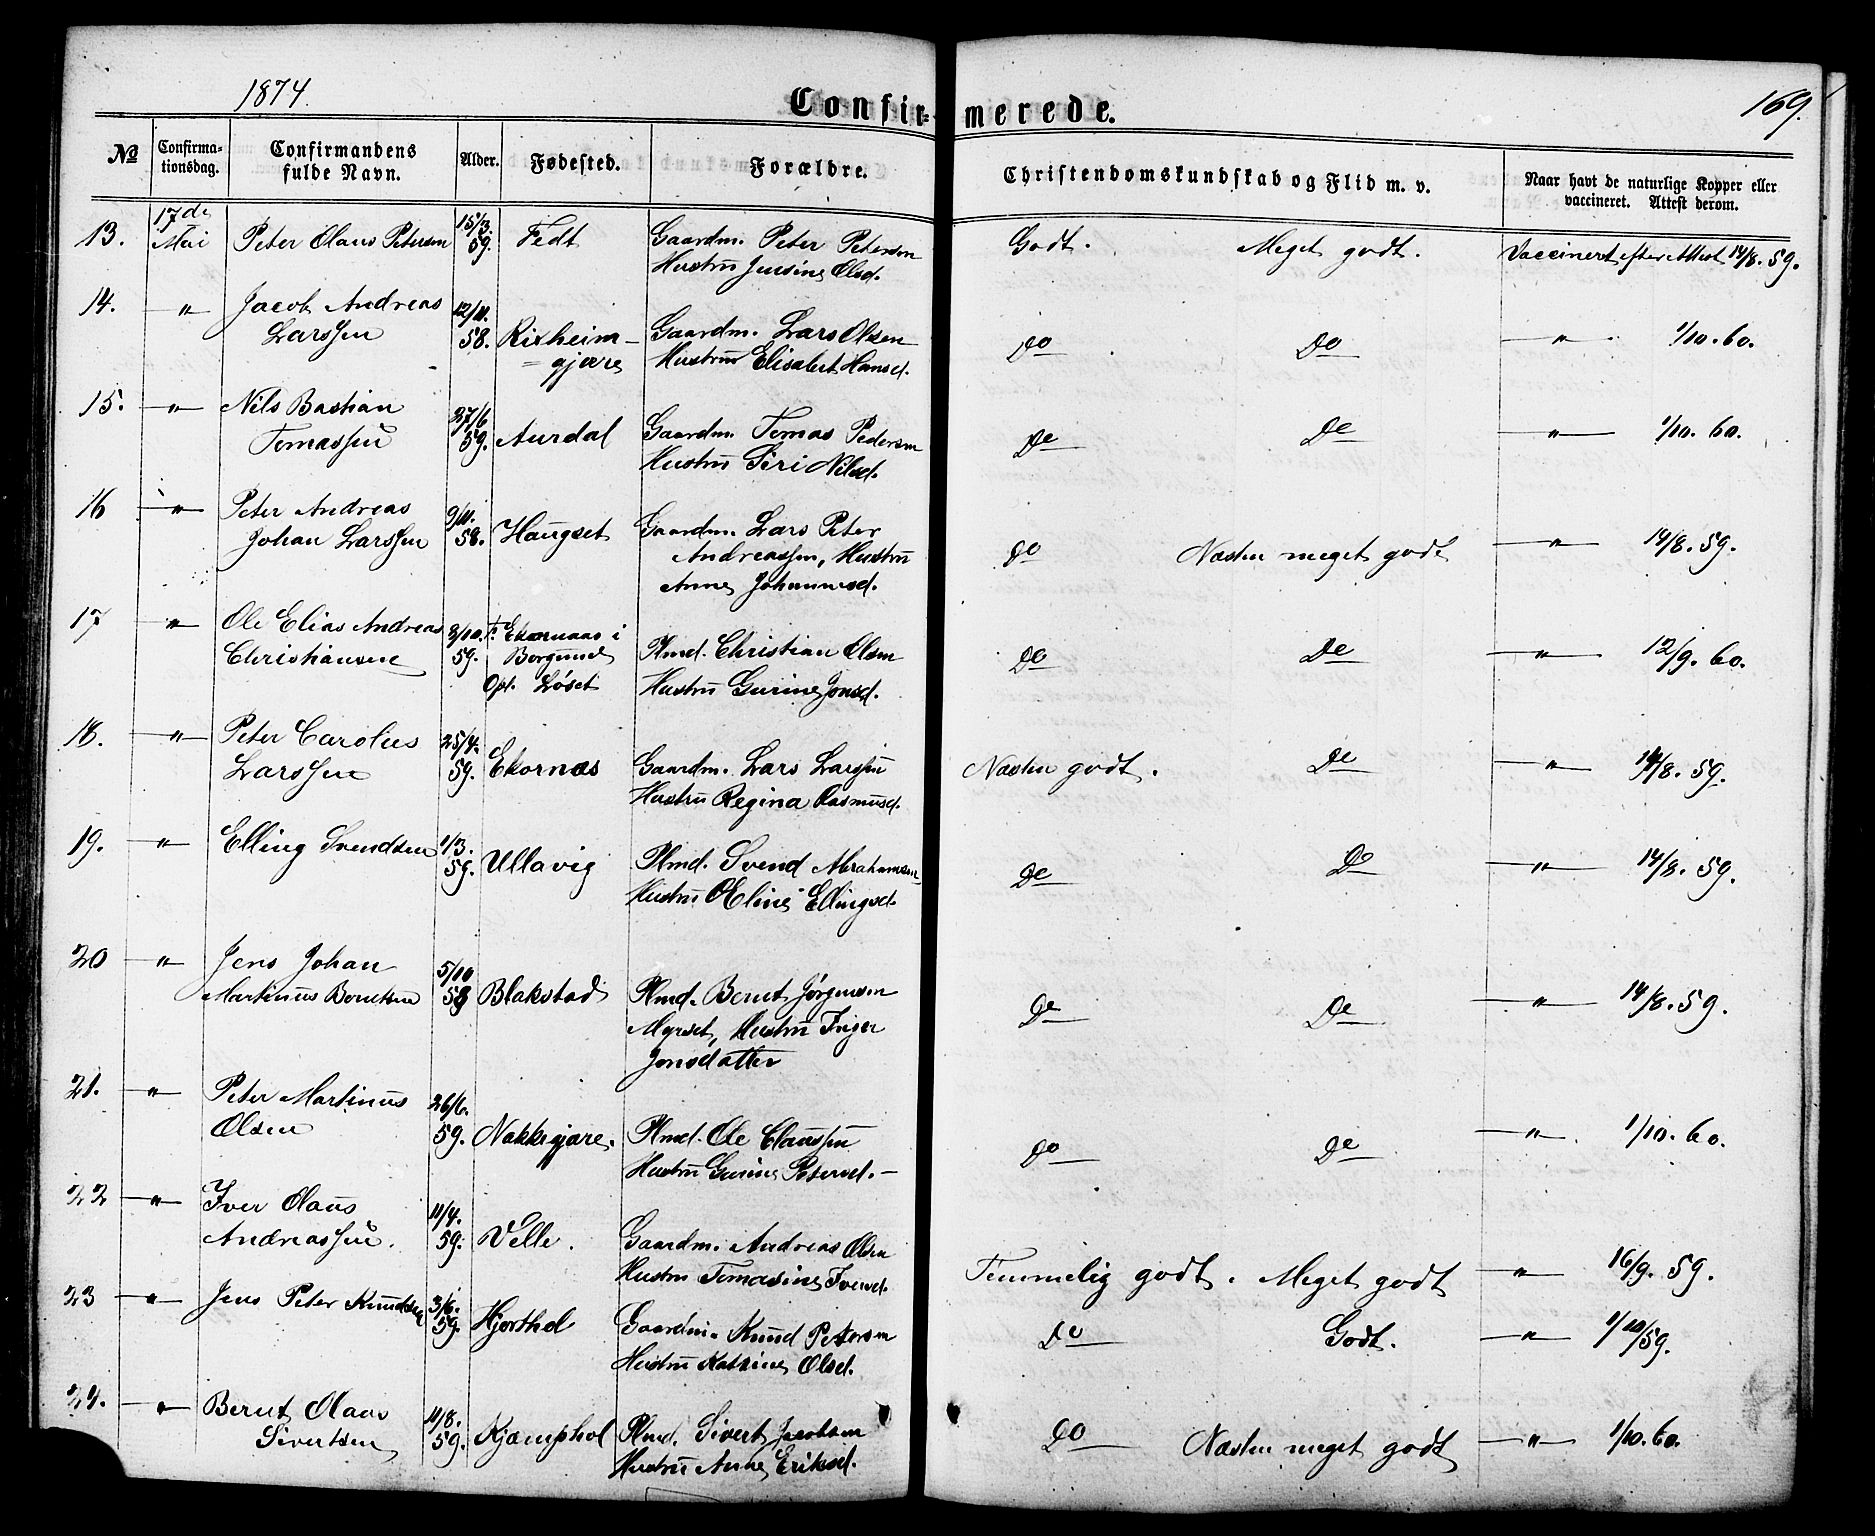 1874.
Confir- merede.
169.
No Confirmationsdag. Confirmandens fulde Navn. Alder. Fødested. Forældre. Christendomskundskab og Flid m. v. Naar havt de naturlige Kopper eller vaccineret. Attest derom.
13. 17de Mai Peter Olaus Petersen 15/3. 59. Fedt Gaardm. Peter Peterson Godt. Meget godt. Vaccinert efter Attest 14/8. 59.
Hustru Jensine Olsd.
14. " Jacob Andreas 12/11. 58. Rixheim- Gaardm. Lars Olsen Do Do " 1/10. 60.
Larssen = gjære Hustru Elisabet Hansd.
15. " Nils Bastian 27/6 59. Aurdal Gaardm. Tomas Pedersen Do Do " 1/10. 60.
Tomassen Hustru Siri Nilsd.
16 " Peter Andreas 9/11. 58. Haugset Gaardm. Lars Peter Do Næsten meget godt " 14/8. 59.
Johan Larssen Andreassen, Hustru
Anne Johannesd.
17 " Ole Elias Andreas 3/10. 59. F. Ekornaas i Plmd. Christian Olsen Do Do " 12/9. 60.
Christiansen Borgund Hustru Gurine Jonsd.
Opl. Løset
18. " Peter Carolius 25/4. 59. Ekornæs Gaardm. Lars Larssen Næsten godt. Do " 14/8. 59.
Larssen Hustru Regina Rasmusd.
19. " Elling Svendsen 1/3. 59. Ullavig Plmd. Svend Abrahamsen Do Do " 14/8. 59.
Hustru Oline Ellingsd.
20 " Jens Johan 5/10 58 Blakstad Plmd. Bernt Jørgensen Do Do " 14/8. 59.
Martinus Berntsen Myrset, Hustru Inger
Jonsdatter
21. " Peter Martinus 26/6. 59. Nakkegjære. Plmd. Ole Claussen Do Do " 1/10. 60.
Olsen Hustru Gurine Petersd. -
22 " Iver Olaus 11/4. 59. Velle. Gaardm. Andreas Olsen Temmelig godt. Meget godt " 16/9. 59.
Andreassen. Hustru Tomasine Iversd.
23 " Jens Peter Knudsen 3/6. 59. Hjorthol Gaardm. Knud Petersen Do Godt. " 1/10/59.
Hustru Katrine Olsd.
24. " Bernt Olaus 11/8. 59. Kjæmphol Plmd. Sivert Jacobsen Do Næsten meget godt " 1/10. 60.
Sivertsen Hustru Anne Eriksd.